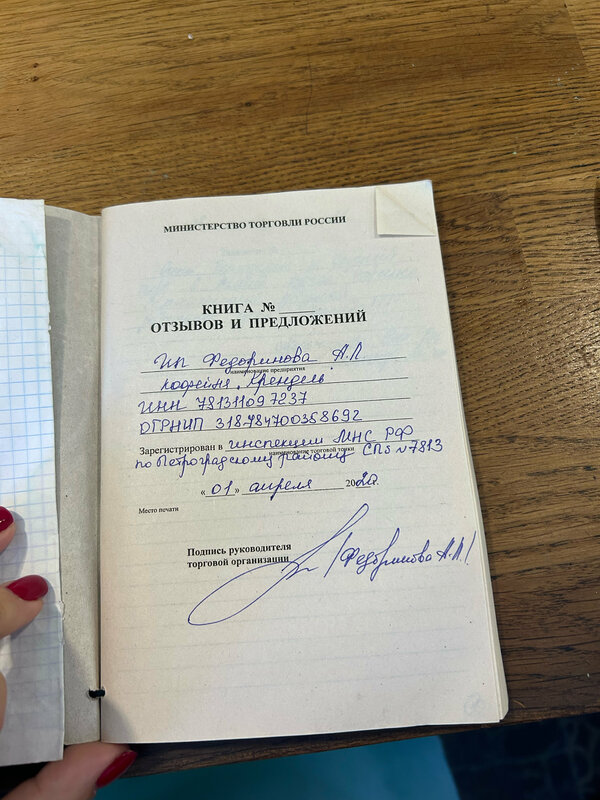 МИНИСТЕРСТВО ТОРГОВЛИ РОССИИ
КНИГА №
ОТЗЫВОВ И ПРЕДЛОЖЕНИЙ
ИП Федоринова А.Л.
наименование предприятия
кофейня "Крендель"
ИНН 781311097237
ОГРНИП 318784700368692
Зарегистрирован в инспекции МНС РФ
наименование торговой точки
по Петроградскому району СПб №7813
«01» апреля 2020г.
Место печати
Подпись руководителя
торговой организации /Федоринова А.Л./